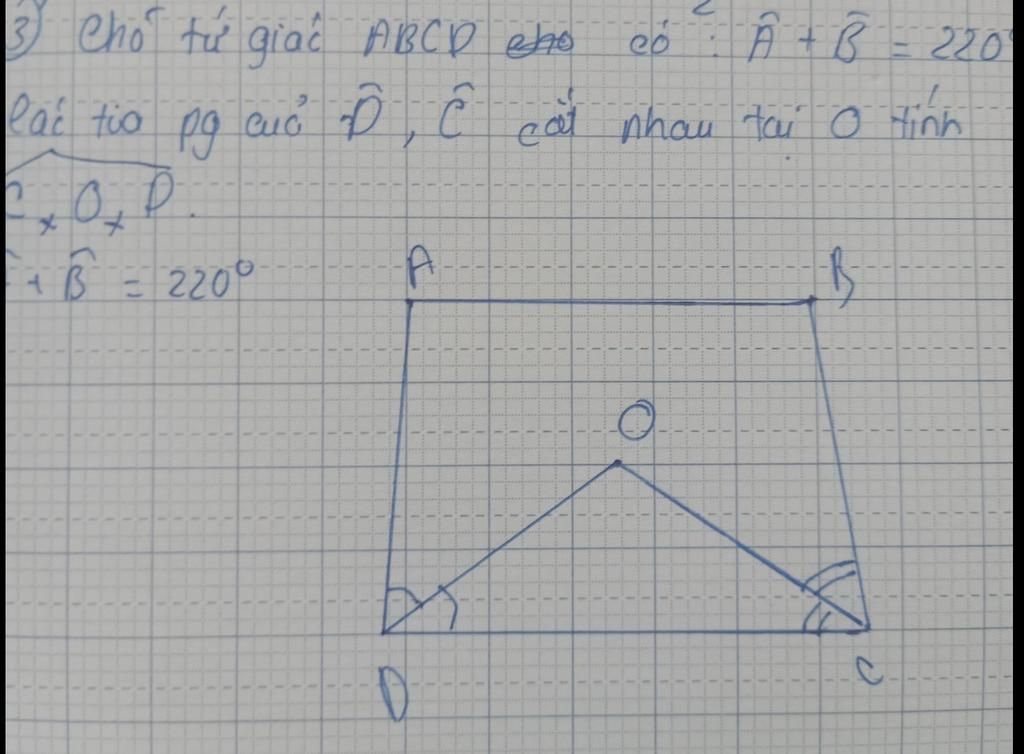 3) Cho tứ giác ABCD cho có : Â + B̂ = 220°
Các tia pg của D̂, Ĉ cắt nhau tại O tính
C, O, D.
+ B̂ = 220°
A
B
O
D
C